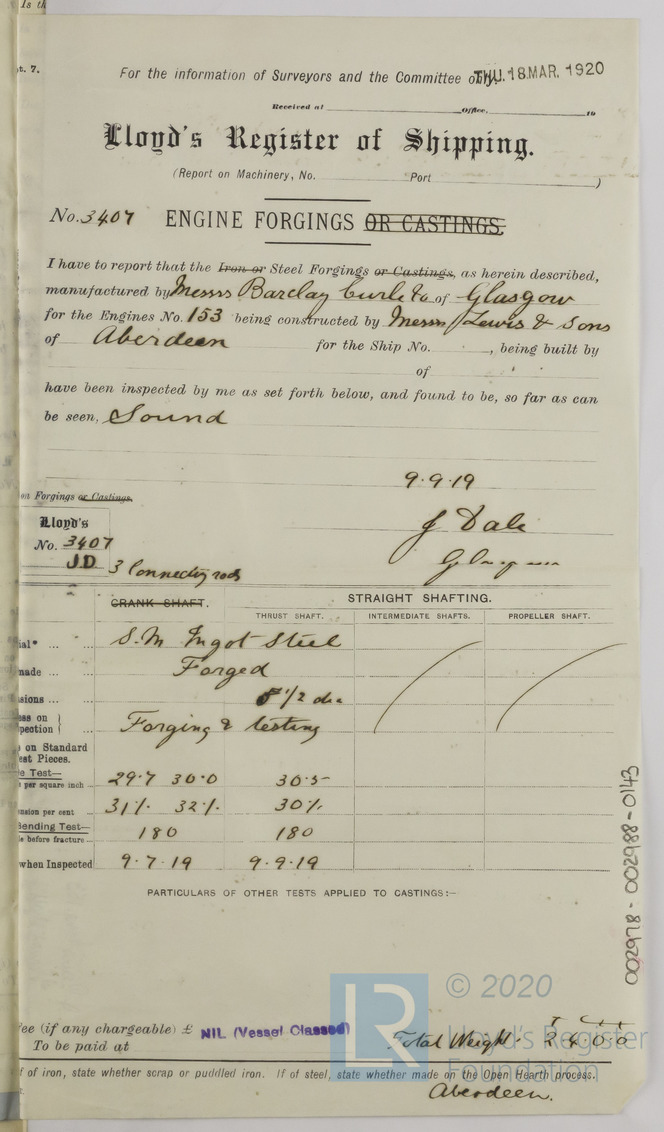 Is th
t. 7.
For the information of Surveyors and the Committee only.
THU. 18. MAR. 1920
Received at Office, 19
Lloyd's Register of Shipping.
(Report on Machinery, No. Port )
No. 3407 ENGINE FORGINGS OR CASTINGS.
I have to report that the Iron or Steel Forgings or Castings, as herein described,
manufactured by Messrs Barclay Curle & Co of Glasgow
for the Engines No. 153 being constructed by Messrs J Lewis & Sons
of Aberdeen for the Ship No. , being built by
of
have been inspected by me as set forth below, and found to be, so far as can
be seen, Sound
9.9.19
on Forgings or Castings.
J Dale
Glasgow
Lloyd's
No. 3407
J.D 3 Connecting rods
CRANK SHAFT. STRAIGHT SHAFTING.
THRUST SHAFT. INTERMEDIATE SHAFTS. PROPELLER SHAFT.
ial* ... ... S.M Ingot Steel
made ... ... Forged
sions ... ... 8 1/2 dia
ess on
pection Forging & testing
on Standard
est Pieces.
e Test—
per square inch ... 29.7 30.0 30.5
ension per cent ... 31% 32% 30%
Bending Test—
le before fracture ... 180 180
when Inspected 9.7.19 9.9.19
PARTICULARS OF OTHER TESTS APPLIED TO CASTINGS:—
002978-002988-0143
© 2020
LR
Lloyd's Register
Foundation
ee (if any chargeable) £ NIL (Vessel Classed)
To be paid at
Total Weight. 2.4.0.0
f of iron, state whether scrap or puddled iron. If of steel, state whether made on the Open Hearth process.
t.
Aberdeen.